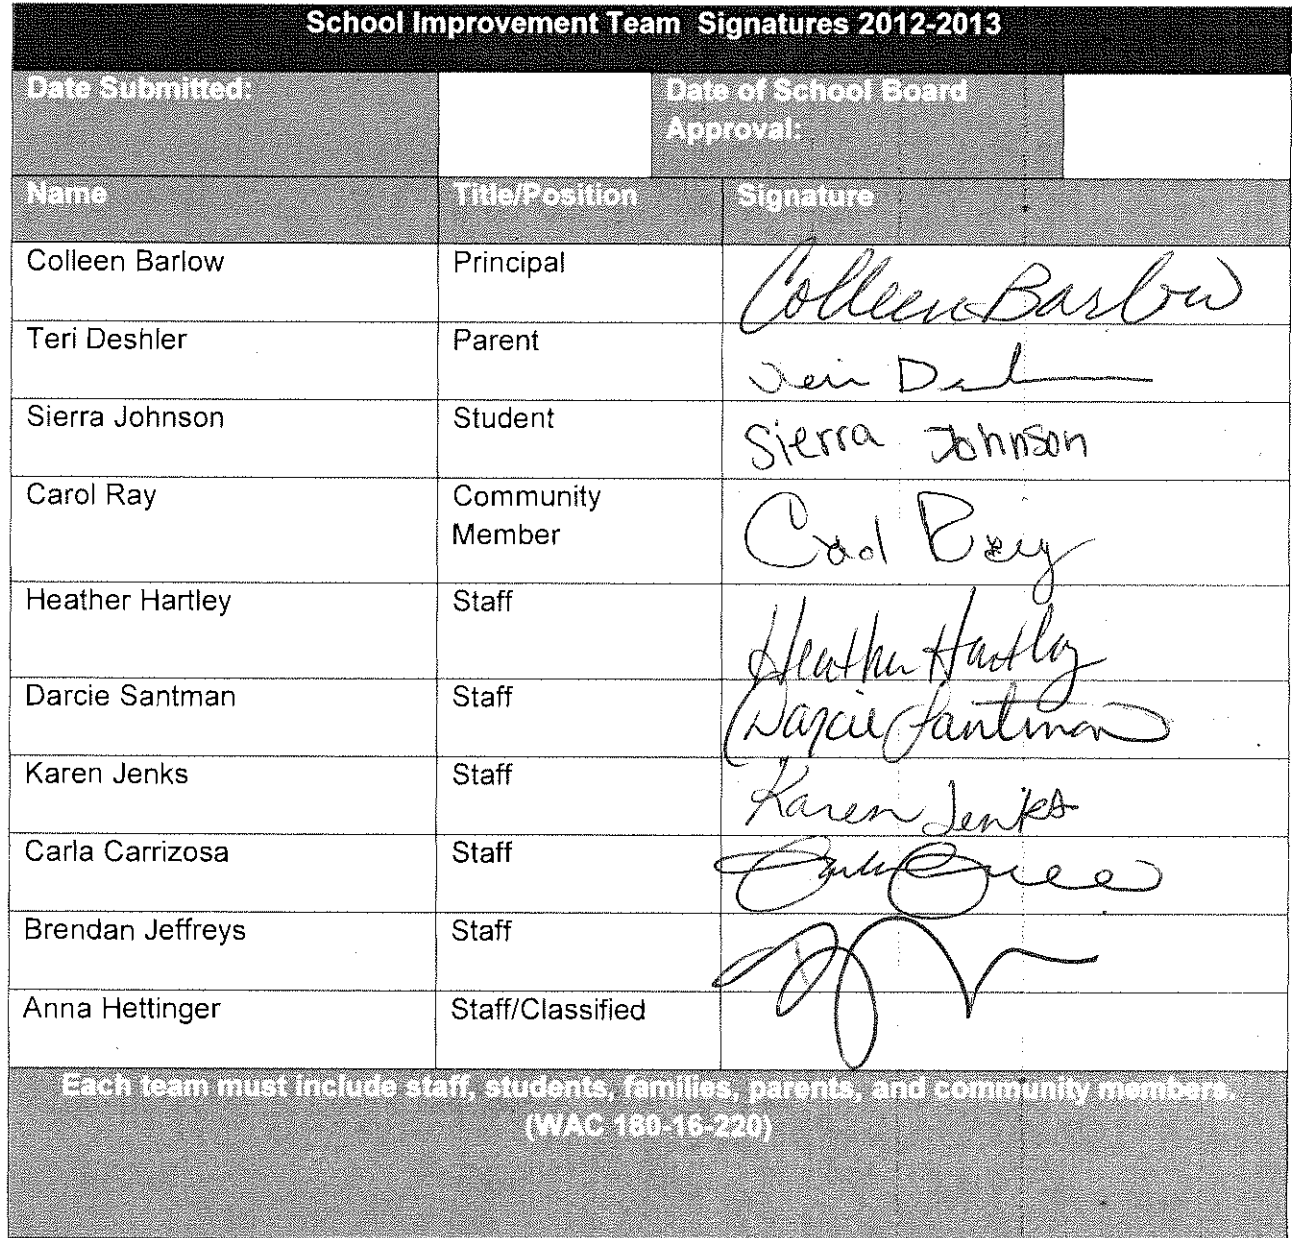 School Improvement Team Signatures 2012-2013
Date Submitted:
Date of School Board
Approval:
Name Title/Position Signature
Colleen Barlow Principal Colleen Barlow
Teri Deshler Parent Teri
Sierra Johnson Student Sierra Johnson
Carol Ray Community
Member Carol Ray
Heather Hartley Staff Heather Hartley
Darcie Santman Staff Darcie Santman
Karen Jenks Staff Karen Jenks
Carla Carrizosa Staff
Brendan Jeffreys Staff
Anna Hettinger Staff/Classified
Each team must include staff, students, families, parents, and community members.
(WAC 180-16-220)